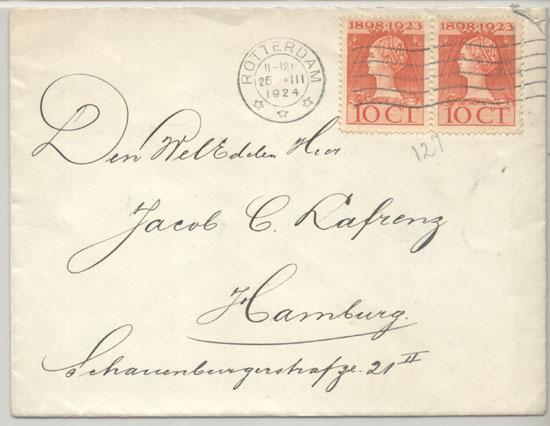 ROTTERDAM
11-12
26 III
1924
1898·1923
10 CT
1898·1923
10 CT
127
Den WelEdelen Heer
Jacob C. Lafrenz
Hamburg.
Schauenburgerstrafze. 21 II